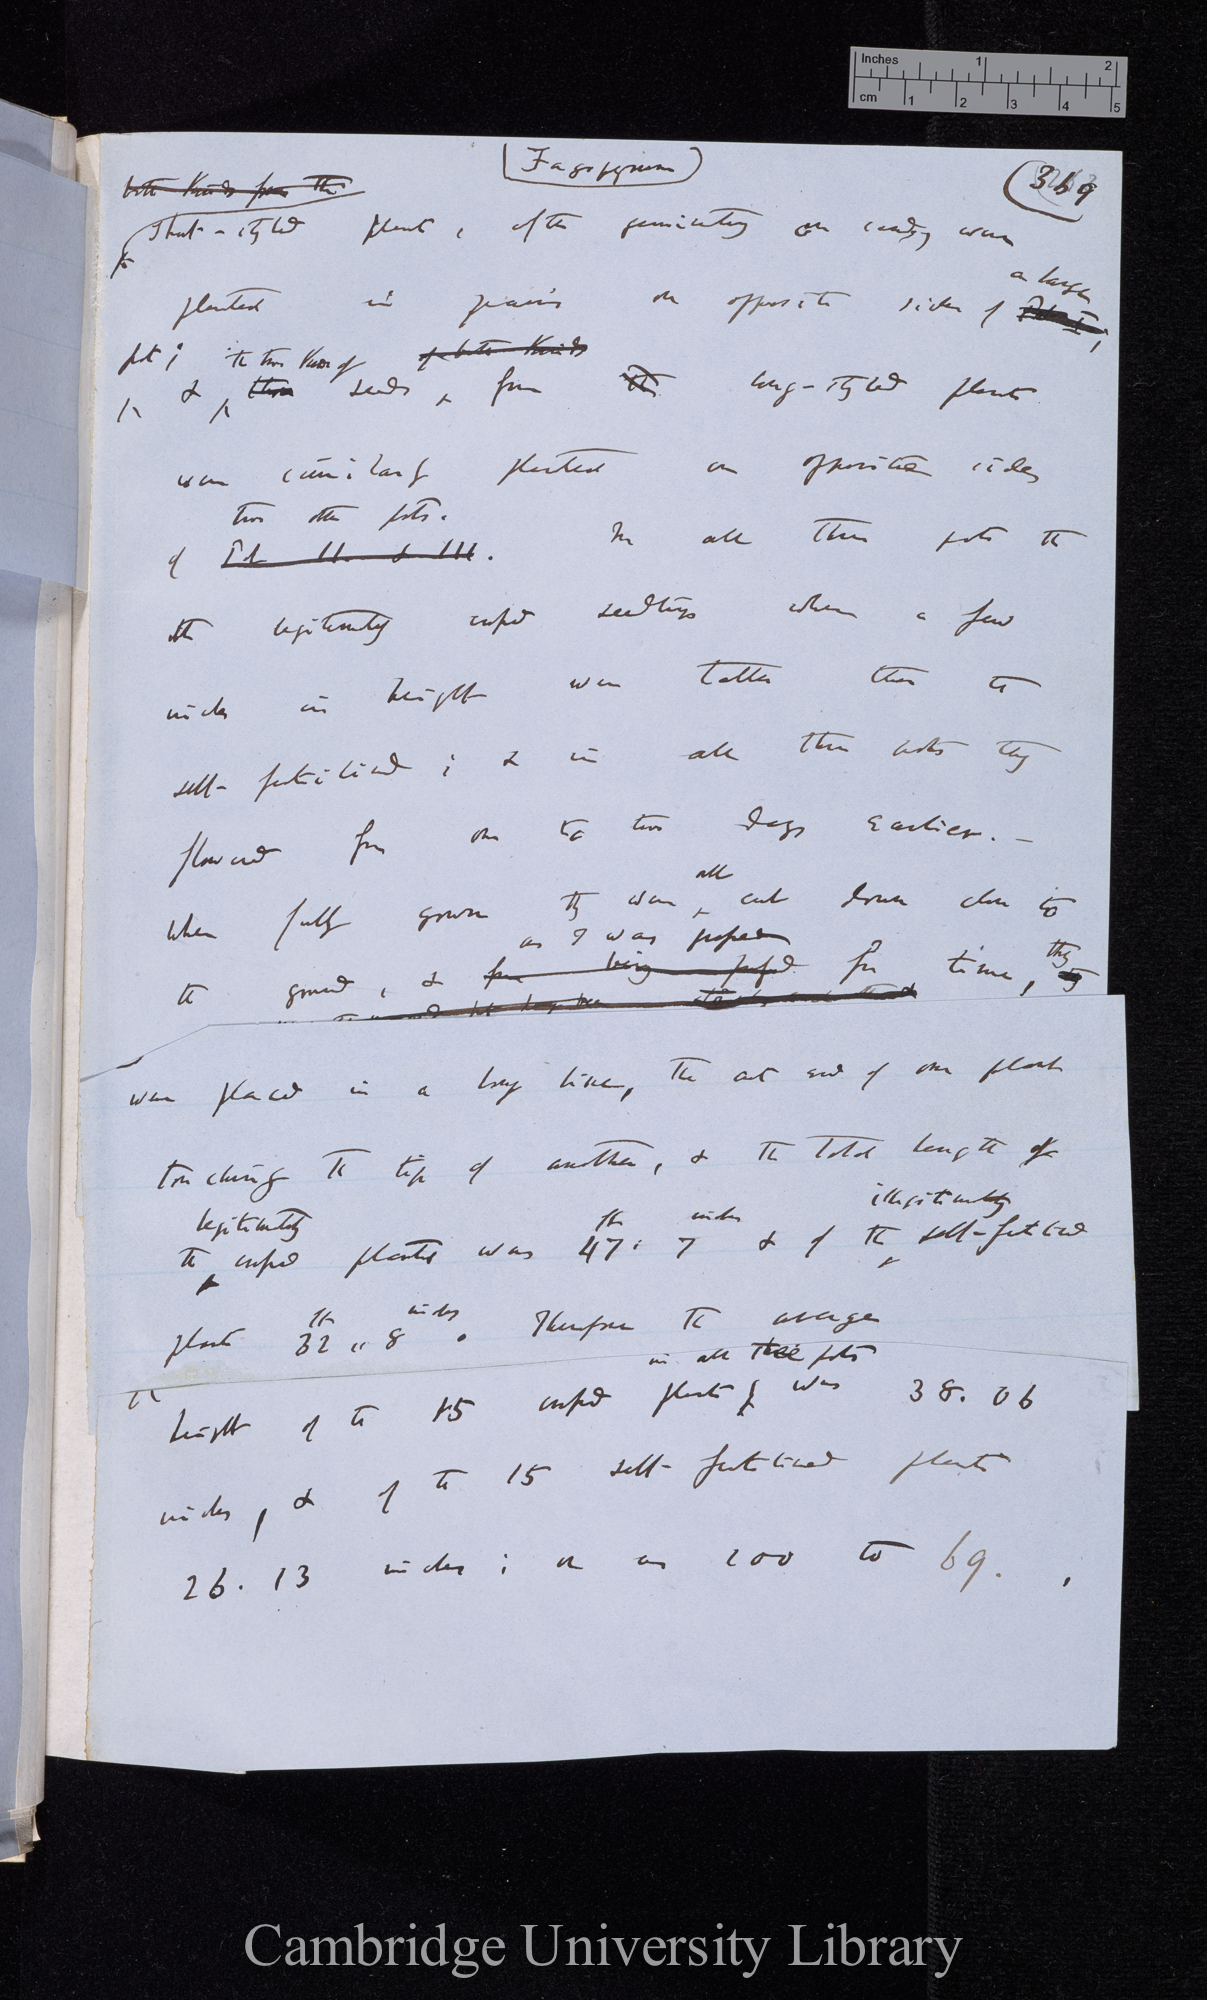 Inches 1 2
cm 1 2 3 4 5
(Fagopyrum)
369
both kinds from the
short-styled plant, after germinating on sand, were
a large
planted in pairs on opposite sides of Pot I;
pot; the two kinds of of both kinds
& these seeds, from the long-styled plants
were similarly planted on opposite sides
two other pots.
of Pots II. & III. In all three pots the
the legitimately crossed seedlings when a few
inches in height were taller than the
self-fertilised; & in all three pots they
flowered from one to two days earlier. —
all
When fully grown they were cut down close to
as I was pressed
the ground, & from being pressed for time, they
were placed in a long line, the cut end of one plant
touching the tip of another, & the total length of
legitimately ft inches illegitimately
the crossed plants was 47. 7 & of the self-fertilised
ft inches
plants 32 " 8. Therefore the average
in all three pots
height of the 15 crossed plants was 38.06
inches, & of the 15 self-fertilised plants
26.13 inches; or as 100 to 69.
Cambridge University Library